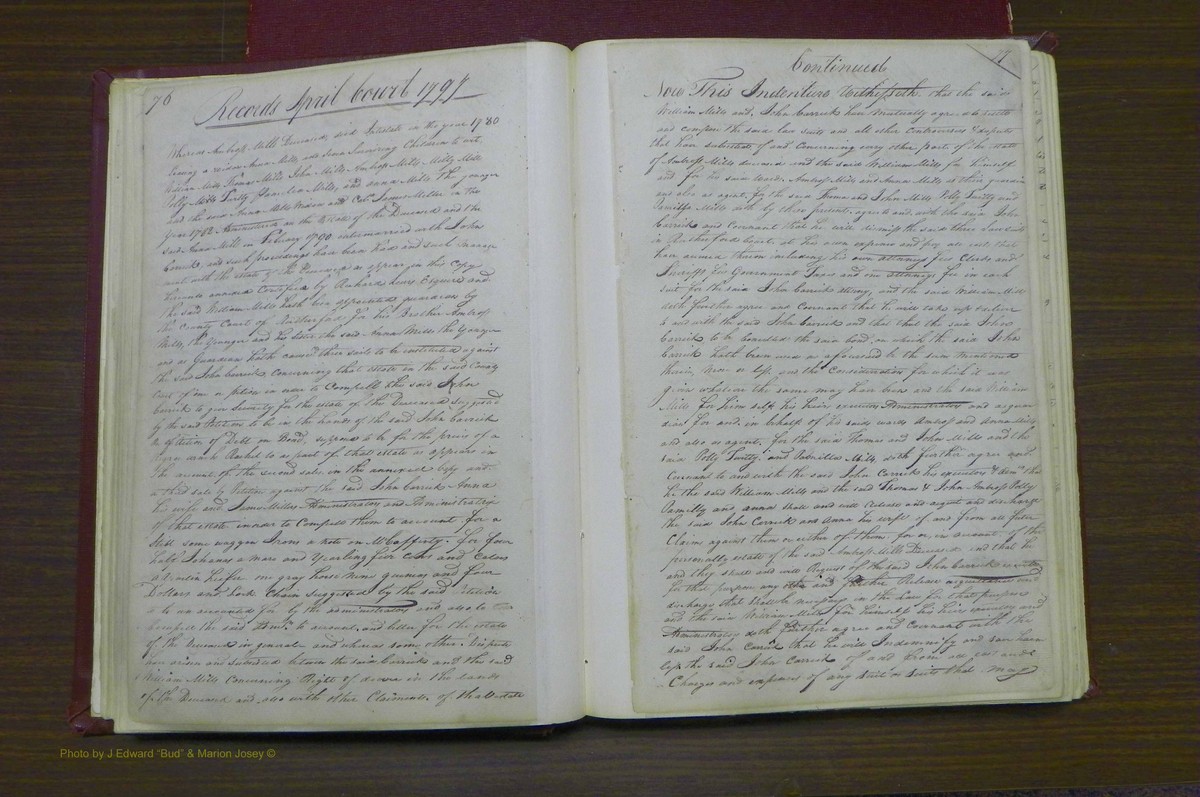 76
Records April Court 1797
Whereas Ambrose Mills Deceased, died Intestate in the year 1780
leaving a widow Anna Mills, and Seven Surviving Children to wit,
William Mills Thomas Mills John Mills Ambrose Mills Milly Mills
Polly Mills and Anna Mills the younger
and the said Anna Mills Widow and Col. James Miller in the
year 1782 Administered on the Estate of the Deceased and the
said Anna Mills in February 1790 intermarried with John
Carrick and such proceedings have been had and such manage
ment with the estate of the Deceased as appear in this Copy
hereunto annexed Certified by Richard Lewis Esquire and
the said William Mills hath been appointed guardian by
the County Court of Rutherford for his Brother Ambrose
Mills, the Younger and his Sister the said Anna Mills the Younger
and as Guardian hath caused three suits to be instituted against
the said John Carrick concerning that estate in the said County
Court of one a petition in order to Compell the said John
Carrick to give Security for the estate of the Deceased suggested
by the said Petition to be in the hands of the said John Carrick
an action of Debt on Bond, supposed to be for the price of a
as part of that estate as appears in
the account of the second sale in the annexed Copy and
a third sale by Petition against the said John Carrick Anna
his wife and James Miller Administrators and Administratrix
of that estate in order to Compell them to account for a
Still some waggon Irons a note on McCafferty for four
half Johannes a mare and Yearling five Cows and Calves
heifer one gray horse nine guineas and four
Dollars and Suggested by the said Petition
to be accounted for by the administrator and also to
compell the said Adm. to account and better for the estate
of the Deceased in general and whereas some other Disputes
have arisen and subsisted between the said Carrick and the said
William Mills Concerning Right of dower in the lands
of the Deceased and also with other Claiments of that estate
77
Continued
Now This Indenture Witnesseth that the said
William Mills and, John Carrick have mutually agree to settle
and compose the said law suits and all other controversies & disputes
that have subsisted of and Concerning every other part of the estate
of Ambrose Mills deceased and the said William Mills for himself
and for his said Wards Ambrose Mills and Anna Mills as their guardian
and also as agent, for the said Thomas and John Mills Polly and
Pamilla Mills doth by these presents agree and with the said John
Carrick and Covenant that he will dismiss the said three lawsuits
in Rutherfords Court at his own expense and pay all costs that
have accrued thereon including his own attorneys fees Clerks and
Sheriffs fees Government Taxes and one attorneys fee in each
suit for the said John Carrick attorney, and the said William Mills
doth further agree and Covenant that he will take up & deliver
to and with the said John Carrick and that the said John
Carrick to be cancelled the said bond, on which the said John
Carrick hath been sued as aforesaid be the sum mentioned
therein, more or less and the Consideration for which it was
given whatever the same may have been and the said William
Mills for himself his heirs executors Administrators and as guar
dian for and in behalf of his said wards Ambrose and Anna Mills
and also as agent, for the said Thomas and John Mills and the
said Polly and Pamilla Mills doth further agree and
Covenant to and with the said John Carrick his executors & Admrs that
he the said William Mills and the said Thomas & John Ambrose Polly
Pamilly and anna shall and will Release and acquit and discharge
the said John Carrick and Anna his wife of and from all future
Claim against them or either of them for or on account of the
personally estate of the said Ambrose Mills Deceased and that he
and they shall and will Request of the said John Carrick execute
for that purpose any other and further Release acquittance and
discharge that shall be necessary in the law for that purpose
and the said William Mills for himself his heirs executors and
Administrators doth further agree and Covenant with the
said John Carrick that he will Indemnify and save harm
less the said John Carrick of and from all cost and
Charges and expenses of any suit or suits that may
Photo by J Edward "Bud" & Marion Josey ©